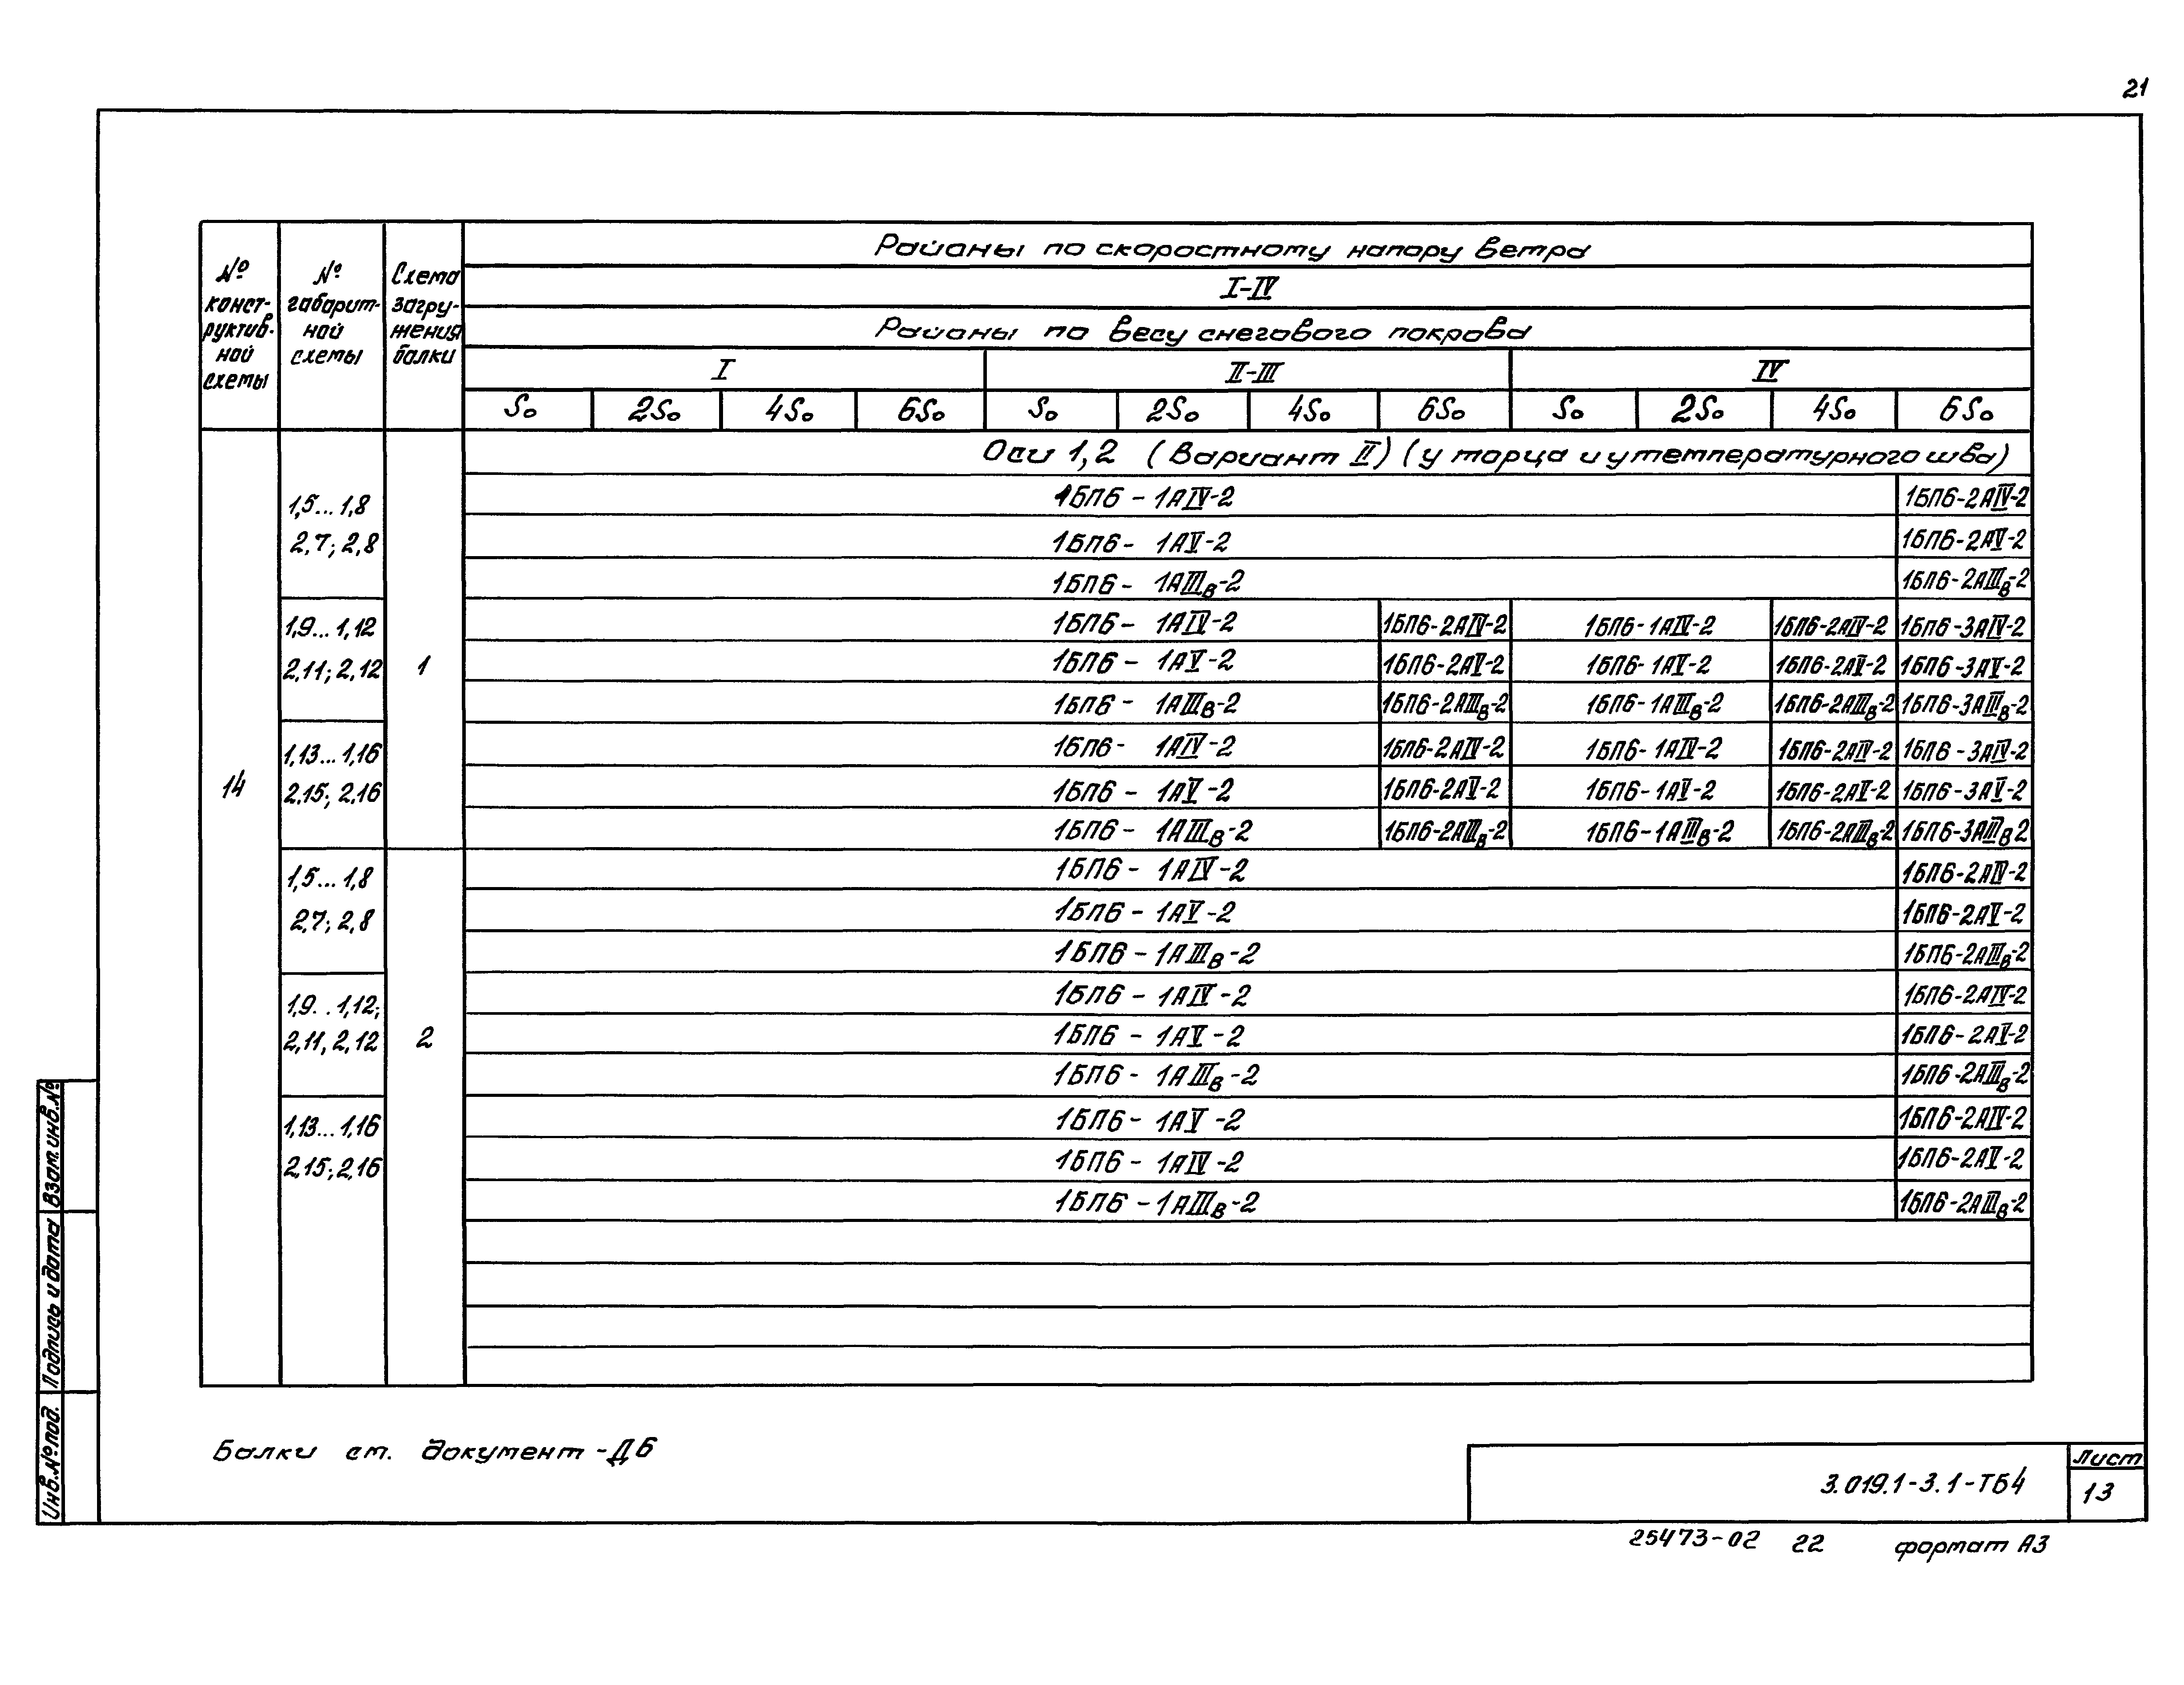 21
№ конст- руктив. ной схемы
№ габарит- ной схемы
Схема загру- жения балки
Районы по скоростному напору ветра
I-IV
Районы по весу снегового покрова
I II-III IV
So 2So 4So 6So So 2So 4So 6So So 2So 4So 6So
Оси 1,2 (Вариант II) (у торца и у температурного шва)
14
1
1,5...1,8
2,7; 2,8
1БП6 - 1АIV-2 1БП6-2АIV-2
1БП6 - 1АV-2 1БП6-2АV-2
1БП6 - 1АIIIв-2 1БП6-2АIIIв-2
1,9...1,12
2,11; 2,12
1БП6 - 1АIV-2 1БП6-2АIV-2 1БП6-1АIV-2 1БП6-2АIV-2 1БП6-3АIV-2
1БП6 - 1АV-2 1БП6-2АV-2 1БП6-1АV-2 1БП6-2АV-2 1БП6-3АV-2
1БП6 - 1АIIIв-2 1БП6-2АIIIв-2 1БП6-1АIIIв-2 1БП6-2АIIIв-2 1БП6-3АIIIв-2
1,13...1,16
2,15; 2,16
1БП6 - 1АIV-2 1БП6-2АIV-2 1БП6-1АIV-2 1БП6-2АIV-2 1БП6-3АIV-2
1БП6 - 1АV-2 1БП6-2АV-2 1БП6-1АV-2 1БП6-2АV-2 1БП6-3АV-2
1БП6 - 1АIIIв-2 1БП6-2АIIIв-2 1БП6-1АIIIв-2 1БП6-2АIIIв-2 1БП6-3АIIIв2
2
1,5...1,8
2,7; 2,8
1БП6 - 1АIV-2 1БП6-2АIV-2
1БП6 - 1АV-2 1БП6-2АV-2
1БП6 - 1АIIIв-2 1БП6-2АIIIв-2
1,9. . 1,12;
2,11, 2,12
1БП6 - 1АIV-2 1БП6-2АIV-2
1БП6 - 1АV-2 1БП6-2АV-2
1БП6 - 1АIIIв-2 1БП6-2АIIIв-2
1,13...1,16
2,15; 2,16
1БП6 - 1АV-2 1БП6-2АIV-2
1БП6 - 1АIV-2 1БП6-2АV-2
1БП6 - 1АIIIв-2 1БП6-2АIIIв-2
Балки см. документ -Д6
3.019.1-3.1-ТБ4
Лист
13
25473-02 22 формат А3
Инв.№под. Подпись и дата Взам.инв.№